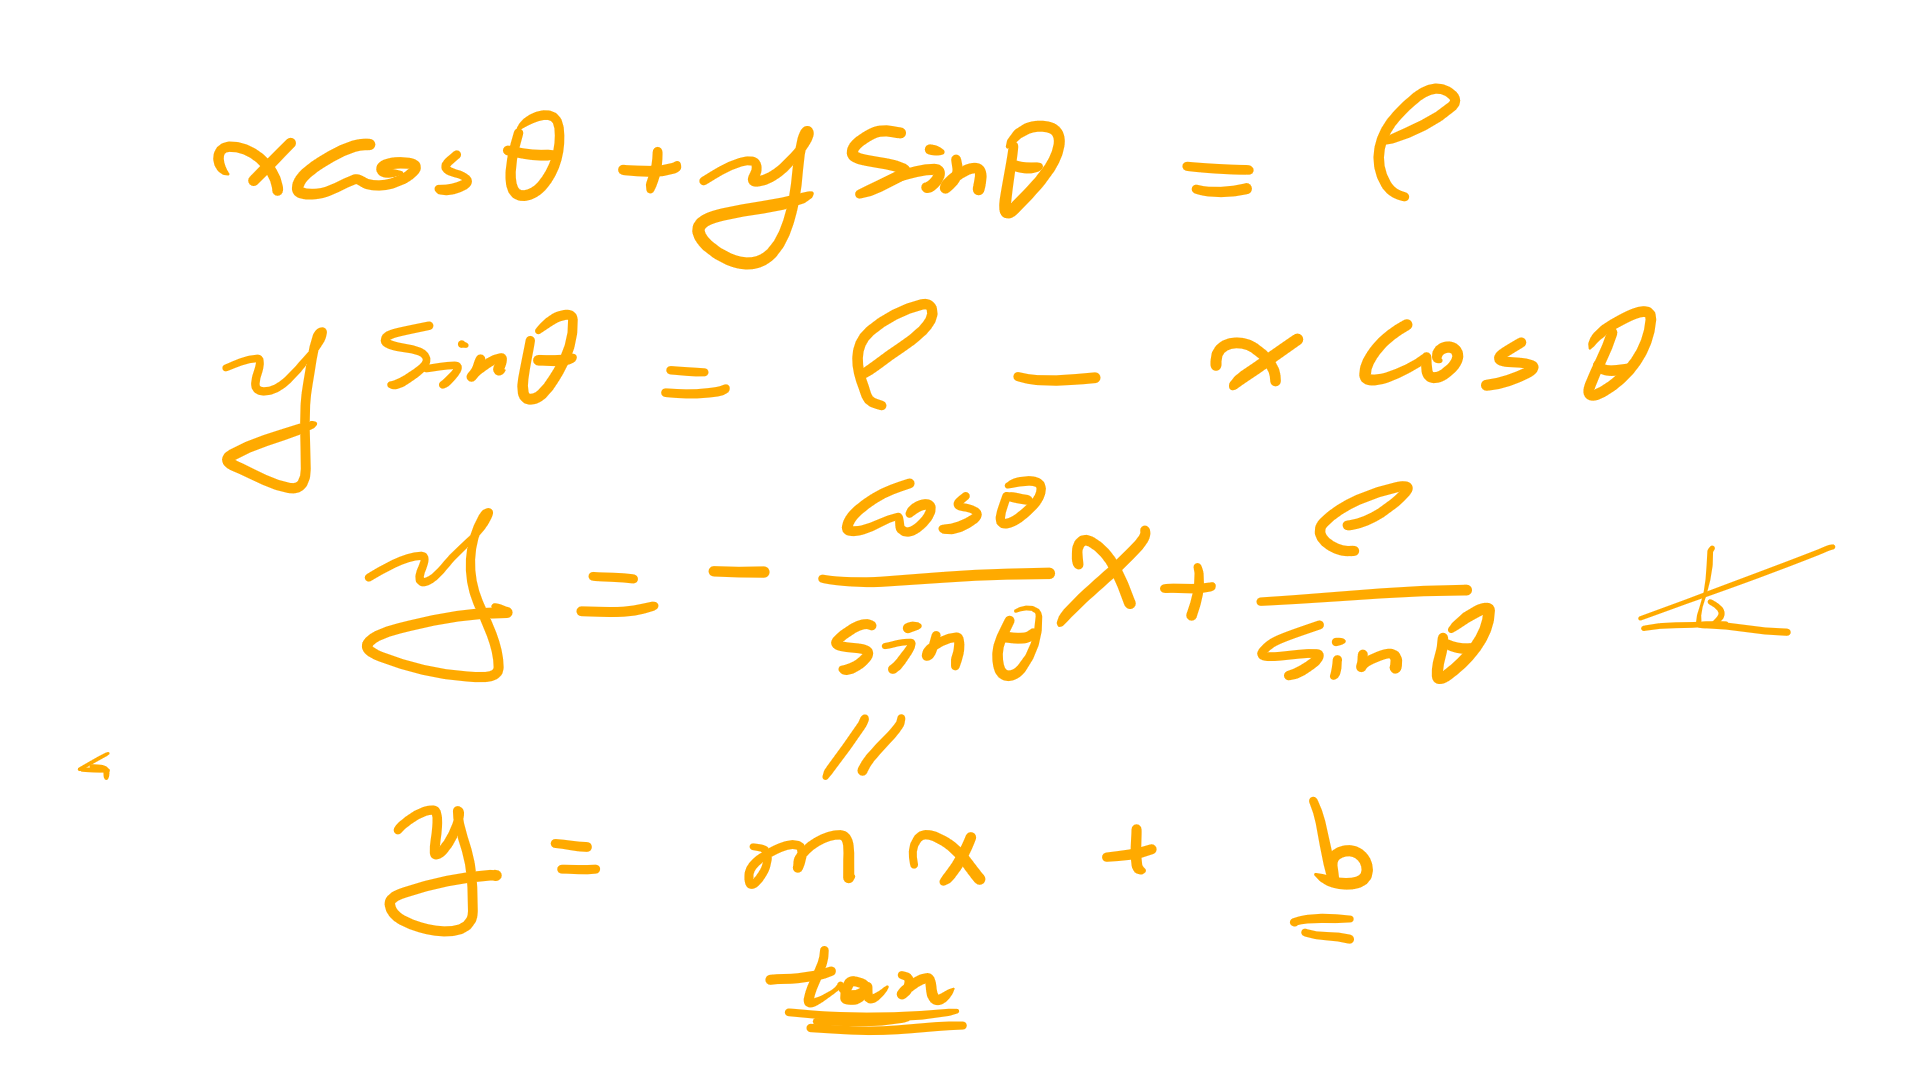 x cos θ + y sin θ = ρ
y sin θ = ρ - x cos θ
y = - cos θ / sin θ x + ρ / sin θ
//
y = m x + b
tan